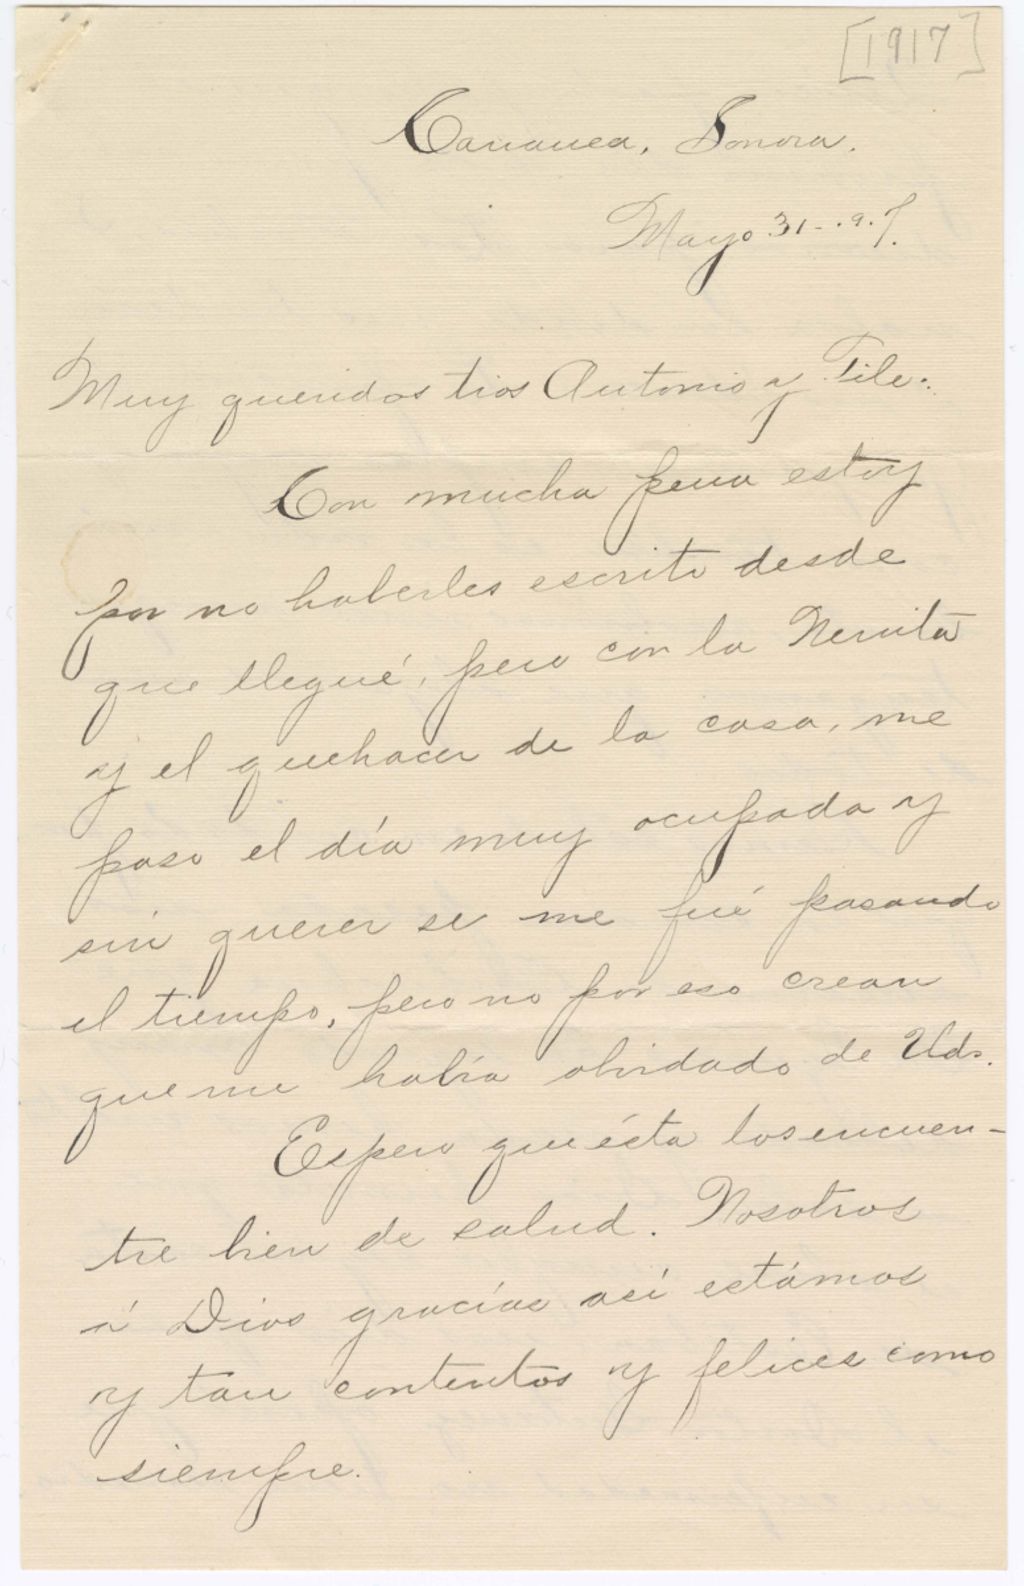 [1917]
Cananea, Sonora.
Mayo 31-.9.7.
Muy queridos tios Antonio y Tile:
Con mucha pena estoy
por no haberles escrito desde
que llegué, pero con la Nenita
y el quehacer de la casa, me
paso el día muy ocupada y
sin querer se me fué pasando
el tiempo, pero no por eso crean
que me había olvidado de Uds.
Espero que ésta los encuen-
tre bien de salud. Nosotros
á Dios gracias así estámos
y tan contentos y felices como
siempre.